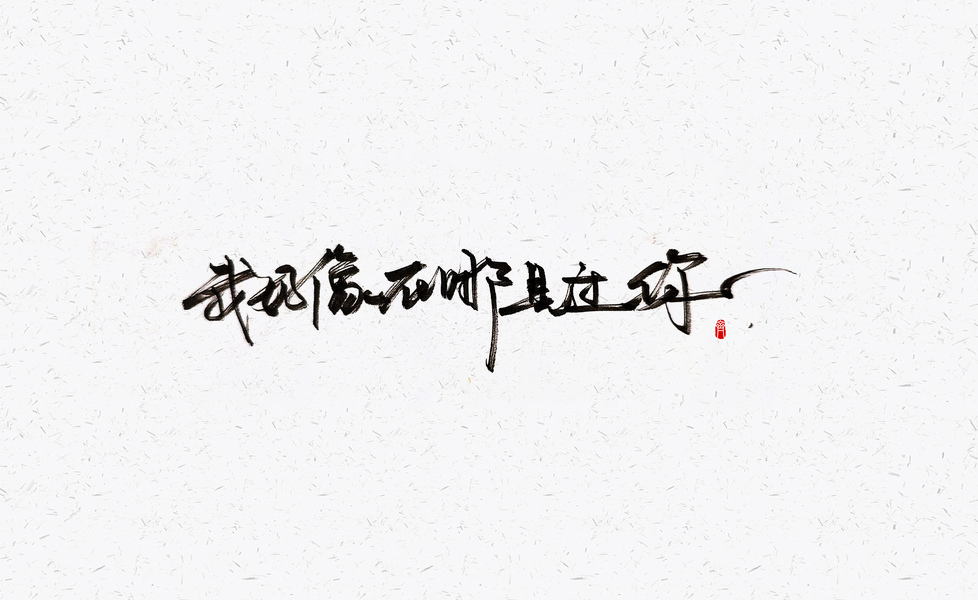 我好像在哪见过你